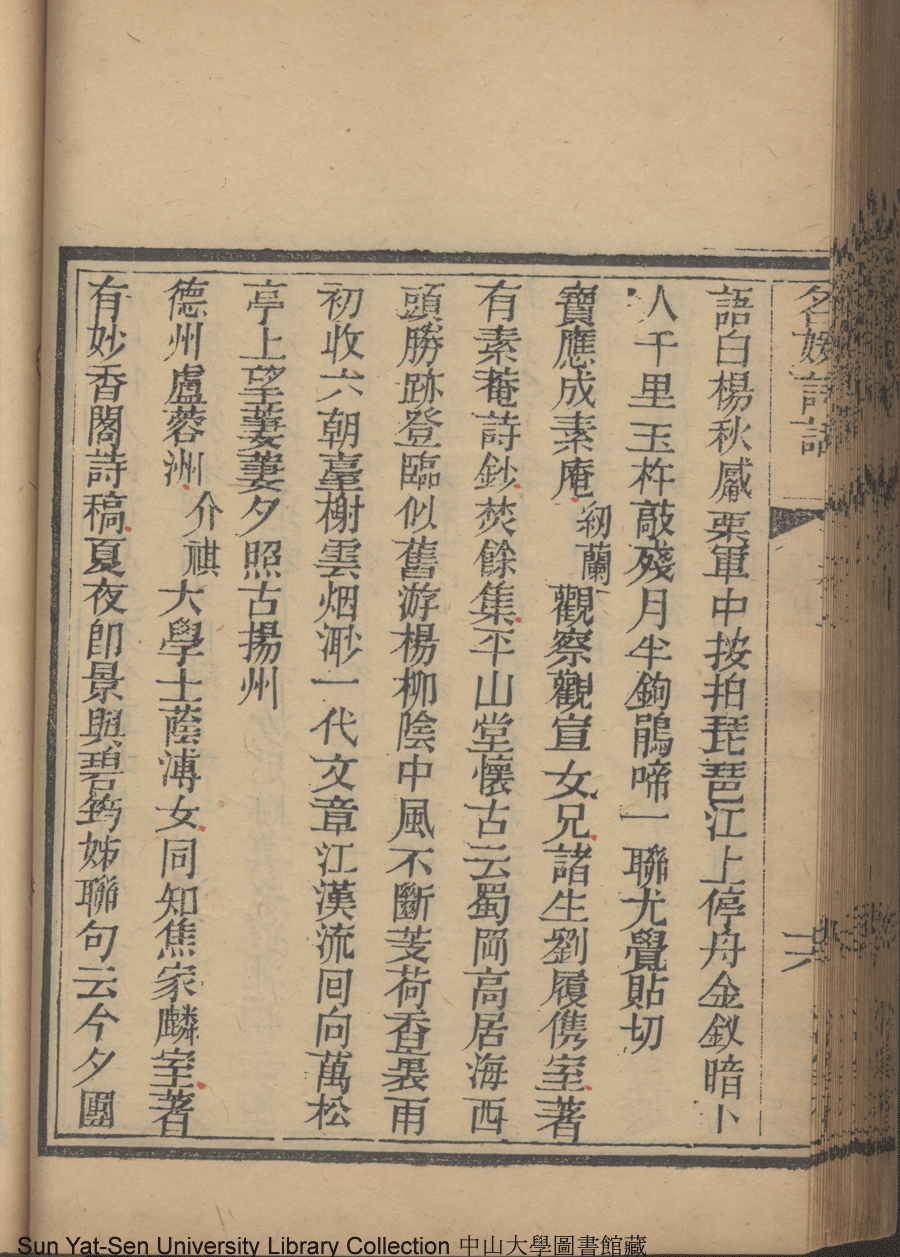 名媛詩話
十六
語白楊秋觱栗軍中按拍琵琶江上停舟金釵暗卜
人千里玉杵敲殘月半鉤鵑啼一聯尤覺貼切
寶應成素庵紉蘭觀察觀宣女兄諸生劉履儁室著
有素菴詩鈔焚餘集平山堂懷古云蜀岡高居海西
頭勝跡登臨似舊游楊柳陰中風不斷芰荷香裏雨
初收六朝臺榭雲烟渺一代文章江漢流囘向萬松
亭上望萋萋夕照古揚州
德州盧蓉洲介祺大學士蔭溥女同知焦家麟室著
有妙香閣詩稿夏夜卽景與碧筠姊聯句云今夕團
Sun Yat-Sen University Library Collection 中山大學圖書館藏